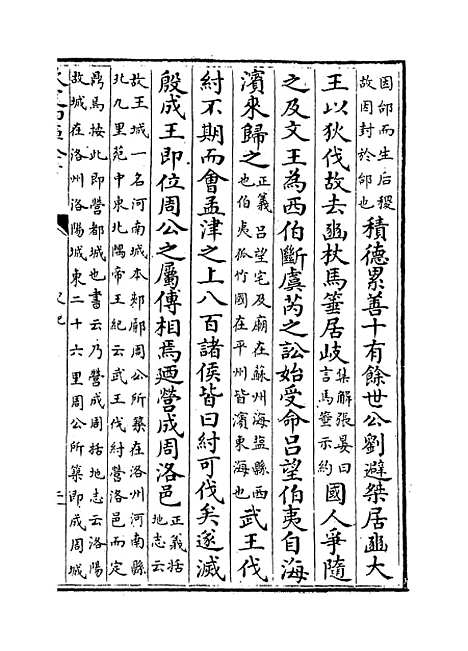 因邰而生后稷故因封於邰也積德累善十有餘世公劉避桀居豳大
王以狄伐故去豳杖馬箠居岐集解張晏曰言馬箠示約國人爭隨
之及文王為西伯斷虞芮之訟始受命呂望伯夷自海
濱來歸之正義呂望宅及廟在蘇州海鹽縣西也伯夷孤竹國在平州皆濱東海也武王伐
紂不期而會孟津之上八百諸侯皆曰紂可伐矣遂滅
殷成王即位周公之屬傅相焉廼營成周洛邑正義括地志云
故王城一名河南城本郟鄏周公所築在洛州河南縣
北九里苑中東北隅帝王紀云武王伐紂營洛邑而定
鼎焉按此即營都城也書云乃營成周括地志云洛陽
故城在洛州洛陽城東二十六里周公所築即成周城